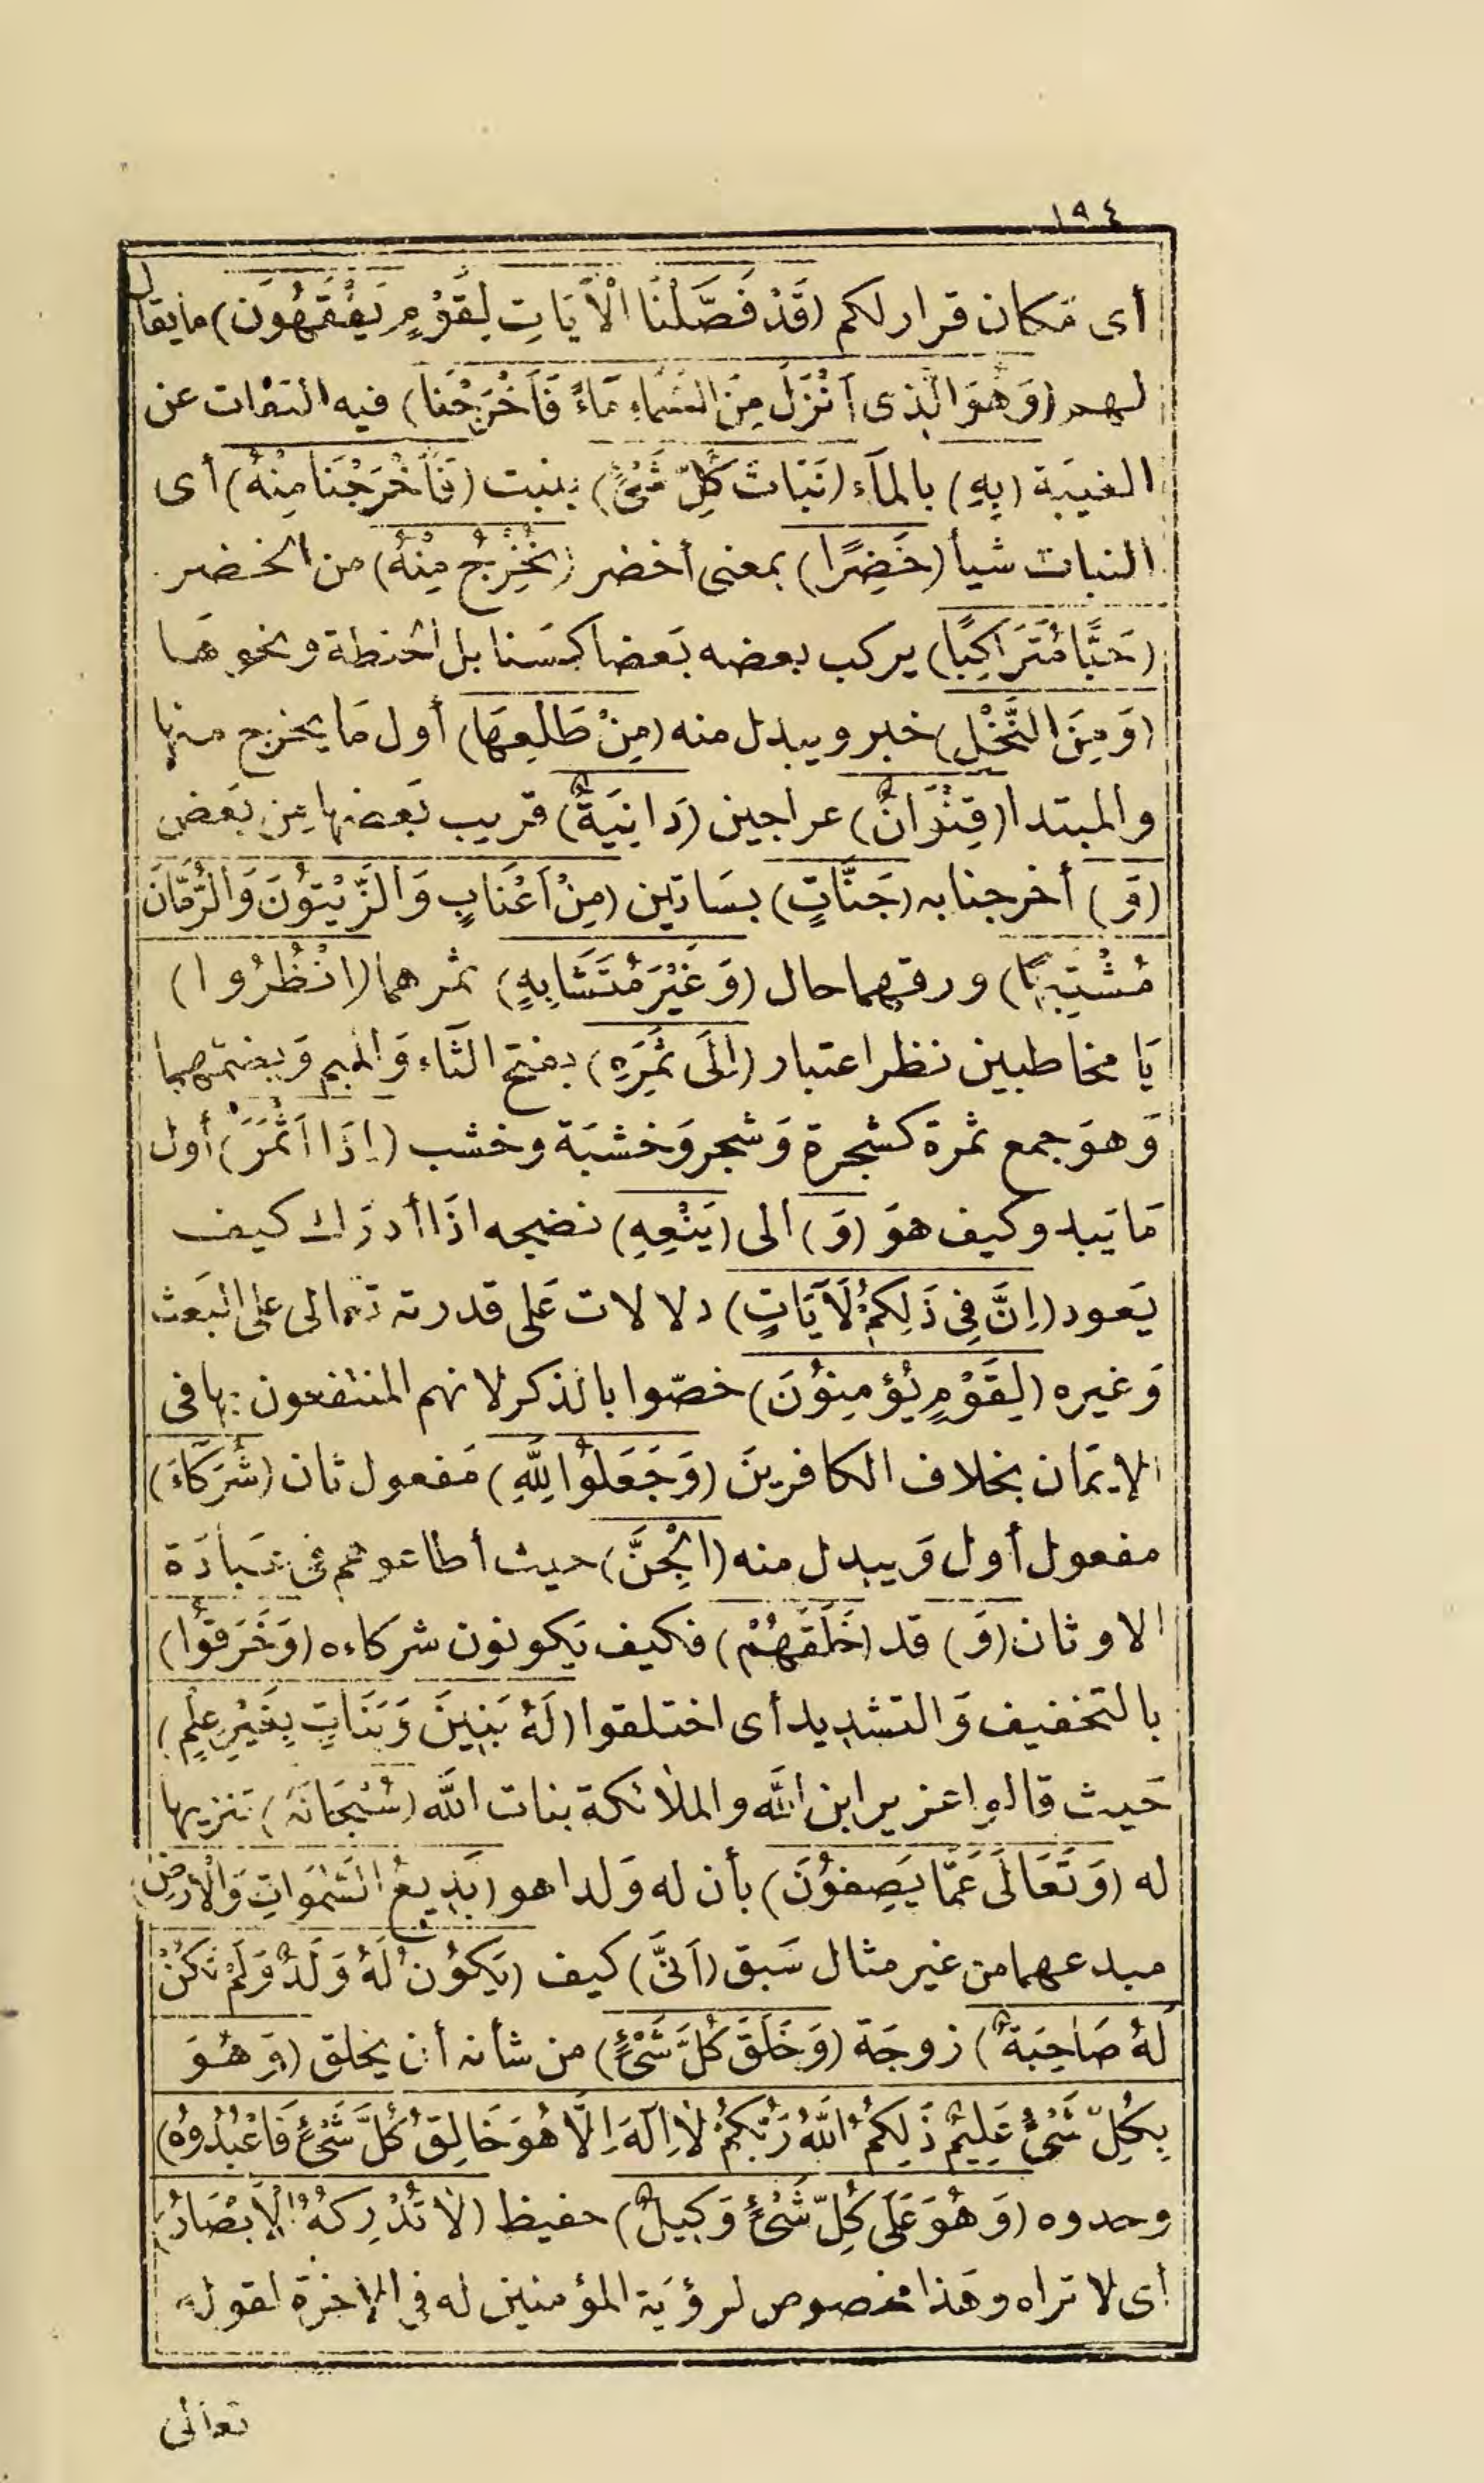 ١٩٤
أى مكان قرار لكم (قَدْ فَصَّلْنَا الْأَيَاتِ لِقَوْمٍ يَفْقَهُونَ) ما يقال
لهم (وَهُوَ الَّذِى أَنْزَلَ مِنَ السَّمَاءِ مَاءً فَأَخْرَجْنَا) فيه التفات عن
الغيبة (بِهِ) بالماء (نَبَاتَ كُلِّ شَىْءٍ) ينبت (فَأَخْرَجْنَا مِنْهُ) أى
النبات شيأ (خَضِرًا) بمعنى أخضر (نُخْرِجُ مِنْهُ) من الخضر
(حَبًّا مُتَرَاكِبًا) يركب بعضه بعضا كسنابل الحنطة ونحوها
(وَمِنَ النَّخْلِ) خبر ويبدل منه (مِنْ طَلْعِهَا) أول ما يخرج منها
والمبتدا (قِنْوَانٌ) عراجين (دَانِيَةٌ) قريب بعضها من بعض
(وَ) أخرجنا به (جَنَّاتٍ) بساتين (مِنْ أَعْنَابٍ وَالزَّيْتُونَ وَالرُّمَّانَ
مُشْتَبِهًا) ورقهما حال (وَغَيْرَ مُتَشَابِهٍ) ثمرهما (انْظُرُوا)
يا مخاطبين نظر اعتبار (إِلَى ثَمَرِهِ) بفتح الثاء والميم وبضمهما
وهو جمع ثمرة كشجرة وشجر وخشبة وخشب (إِذَا أَثْمَرَ) أول
ما يبدو كيف هو (وَ) الى (يَنْعِهِ) نضجه اذا أدرك كيف
يعود (إِنَّ فِى ذَلِكُمْ لَآيَاتٍ) دلالات على قدرته تعالى على البعث
وغيره (لِقَوْمٍ يُؤْمِنُونَ) خصّوا بالذكر لانهم المنتفعون بها فى
الايمان بخلاف الكافرين (وَجَعَلُوا لِلَّهِ) مفعول ثان (شُرَكَاءَ)
مفعول أول ويبدل منه (الْجِنَّ) حيث أطاعوهم فى عبادة
الاوثان (وَ) قد (خَلَقَهُمْ) فكيف يكونون شركاءه (وَخَرَقُوا)
بالتخفيف والتشديد أى اختلقوا (لَهُ بَنِينَ وَبَنَاتٍ بِغَيْرِ عِلْمٍ)
حيث قالوا عزير ابن الله والملائكة بنات الله (سُبْحَانَهُ) تنزيها
له (وَتَعَالَى عَمَّا يَصِفُونَ) بأن له ولدا هو (بَدِيعُ السَّمَوَاتِ وَالْأَرْضِ)
مبدعهما من غير مثال سبق (أَنَّى) كيف (يَكُونُ لَهُ وَلَدٌ وَلَمْ تَكُنْ
لَهُ صَاحِبَةٌ) زوجة (وَخَلَقَ كُلَّ شَىْءٍ) من شأنه أن يخلق (وَهُوَ
بِكُلِّ شَىْءٍ عَلِيمٌ ذَلِكُمُ اللَّهُ رَبُّكُمْ لَا إِلَهَ إِلَّا هُوَ خَالِقُ كُلِّ شَىْءٍ فَاعْبُدُوهُ)
وحدوه (وَهُوَ عَلَى كُلِّ شَىْءٍ وَكِيلٌ) حفيظ (لَا تُدْرِكُهُ الْأَبْصَارُ)
أى لا تراه وهذا مخصوص لرؤية المؤمنين له فى الاخرة لقوله
تعالى